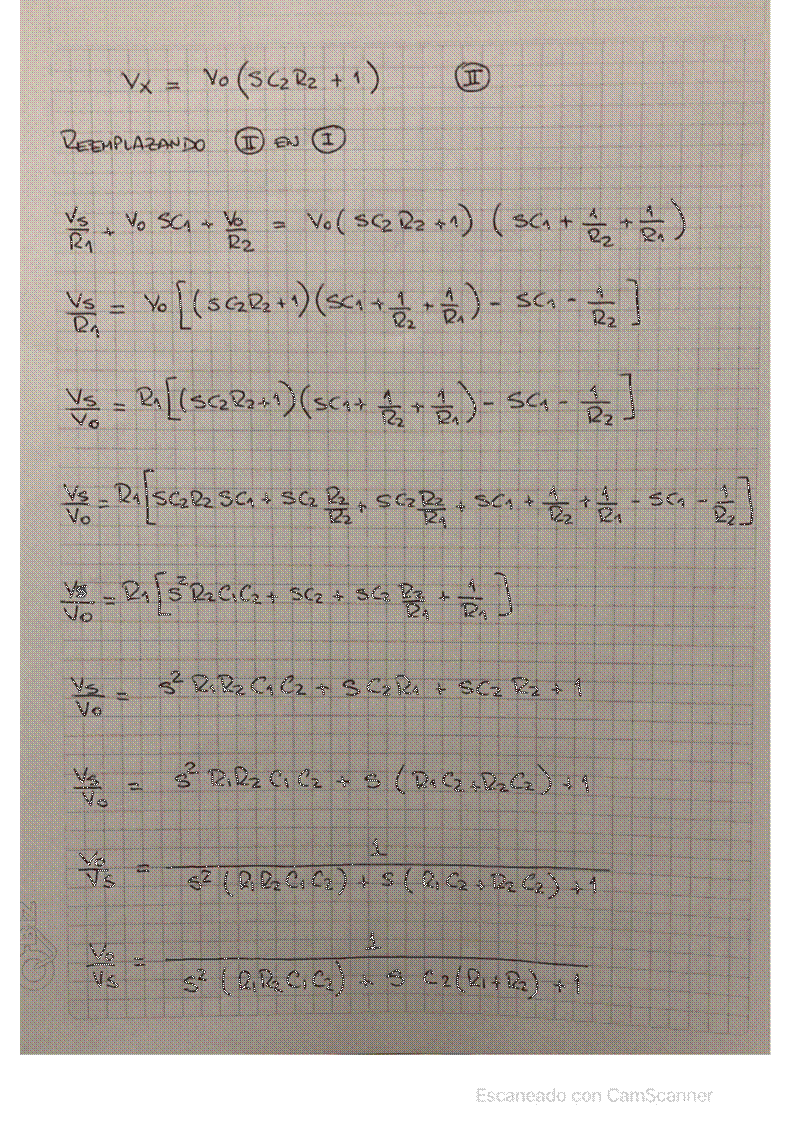 Vx = Vo (SC2R2 + 1) II
REEMPLAZANDO II EN I
Vs/R1 + Vo SC1 + Vo/R2 = Vo (SC2R2 + 1) (SC1 + 1/R2 + 1/R1)
Vs/R1 = Vo [(SC2R2 + 1)(SC1 + 1/R2 + 1/R1) - SC1 - 1/R2]
Vs/Vo = R1 [(SC2R2 + 1)(SC1 + 1/R2 + 1/R1) - SC1 - 1/R2]
Vs/Vo = R1 [SC2R2 SC1 + SC2 R2/R2 + SC2 R2/R1 + SC1 + 1/R2 + 1/R1 - SC1 - 1/R2]
Vs/Vo = R1 [S² R2C1C2 + SC2 + SC2 R2/R1 + 1/R1]
Vs/Vo = S² R1R2 C1C2 + S C2R1 + SC2 R2 + 1
Vs/Vo = S² R1R2 C1C2 + S (R1C2 + R2C2) + 1
Vo/Vs = 1 / S² (R1R2C1C2) + S (R1C2 + R2C2) + 1
Vo/Vs = 1 / S² (R1R2C1C2) + S C2(R1+R2) + 1
Escaneado con CamScanner